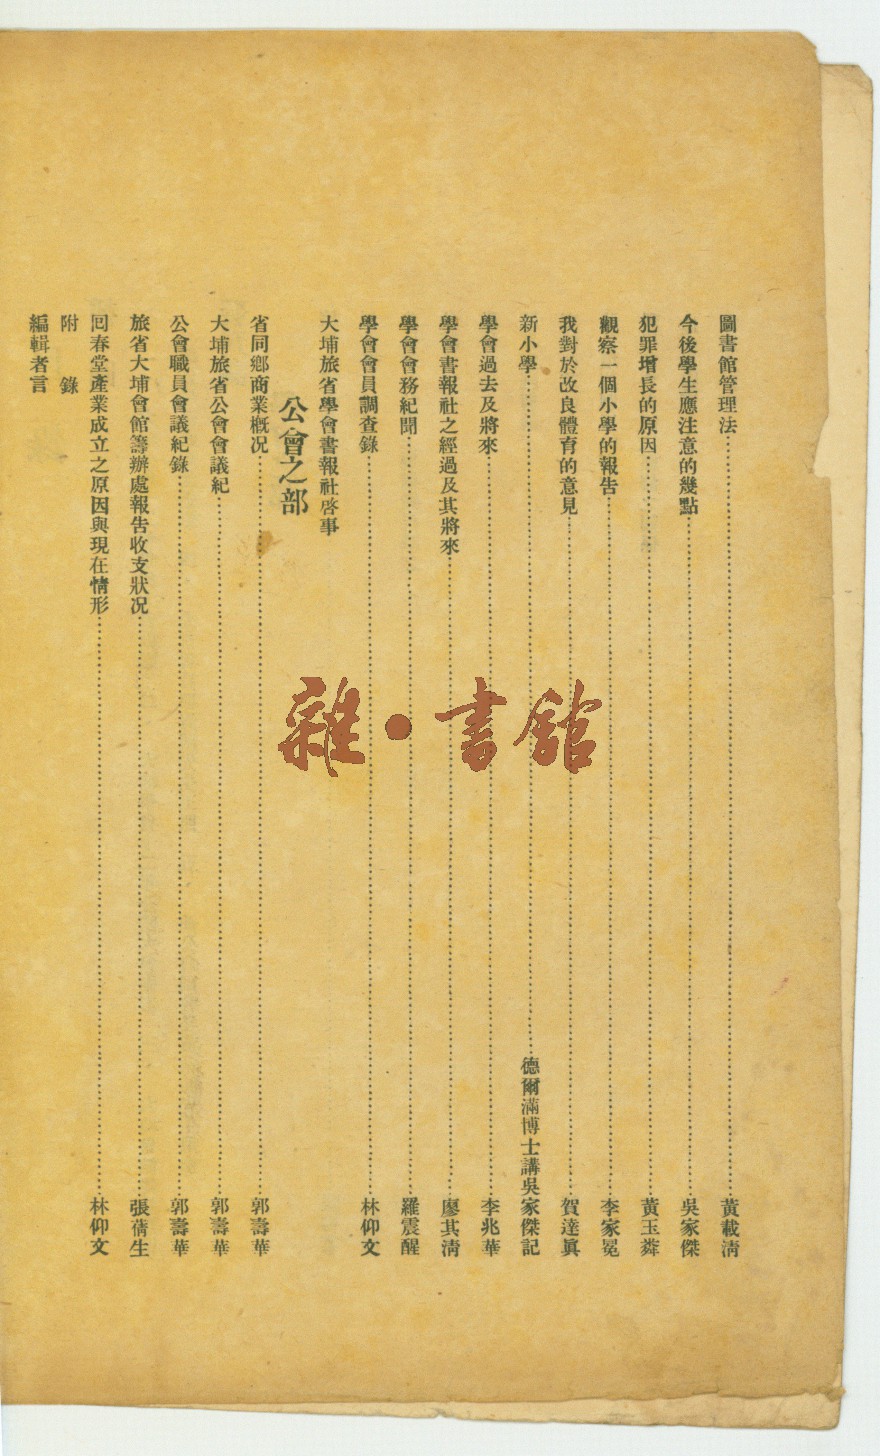 圖書館管理法……黃載清
今後學生應注意的幾點……吳家傑
犯罪增長的原因……黃玉
觀察一個小學的報告……李家冕
我對於改良體育的意見……賀達眞
新小學……德爾滿博士講吳家傑記
學會過去及將來……李兆華
學會書報社之經過及其將來……廖其清
學會會務紀聞……羅震醒
學會會員調查錄……林仰文
大埔旅省學會書報社啓事
公會之部
省同鄉商業概况……郭壽華
大埔旅省公會會議紀……郭壽華
公會職員會議紀錄……郭壽華
旅省大埔會館籌辦處報告收支狀况……張蒨生
回春堂產業成立之原因與現在情形……林仰文
附錄
編輯者言
雜·書館